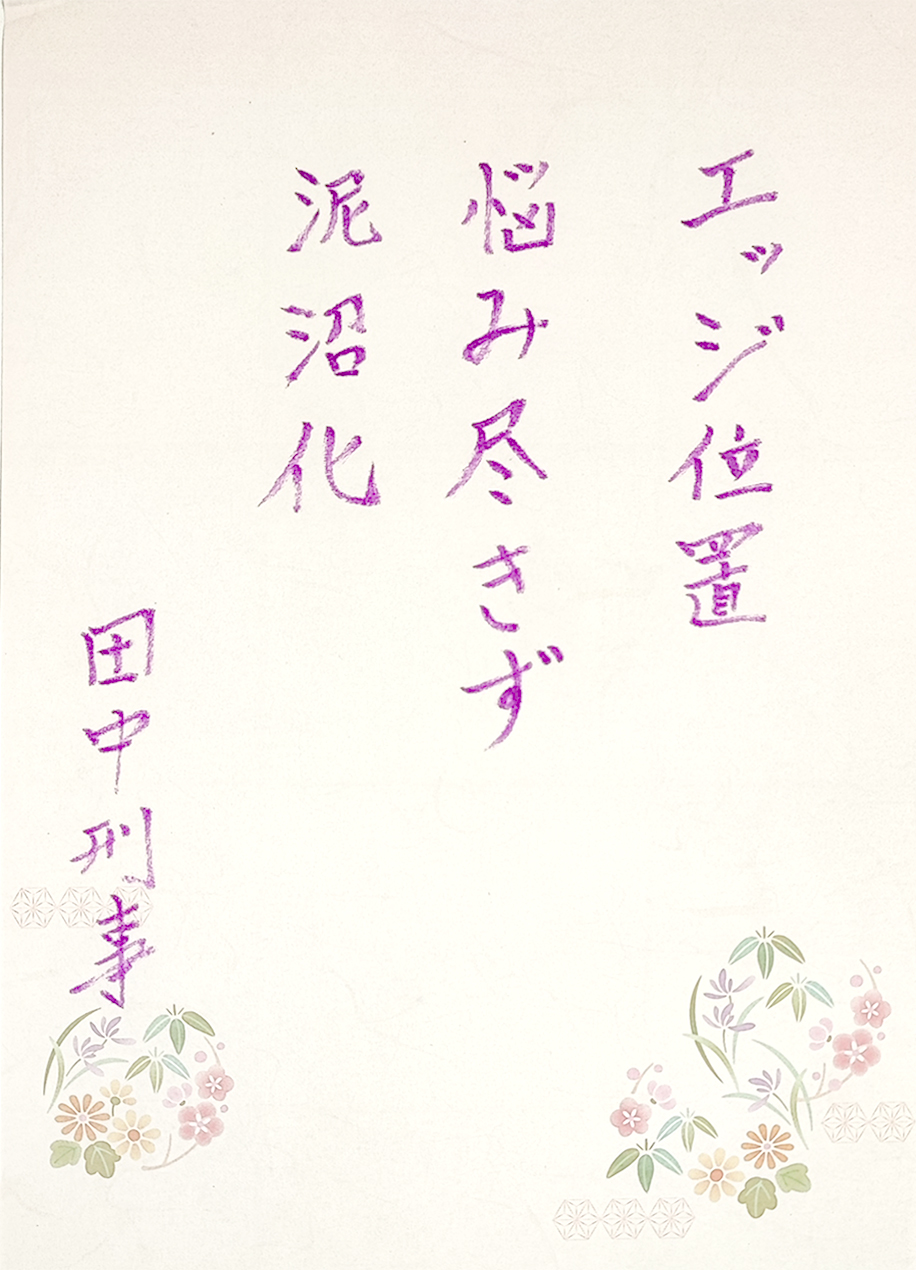 エッジ位置
悩み尽きず
泥沼化
田中刑事